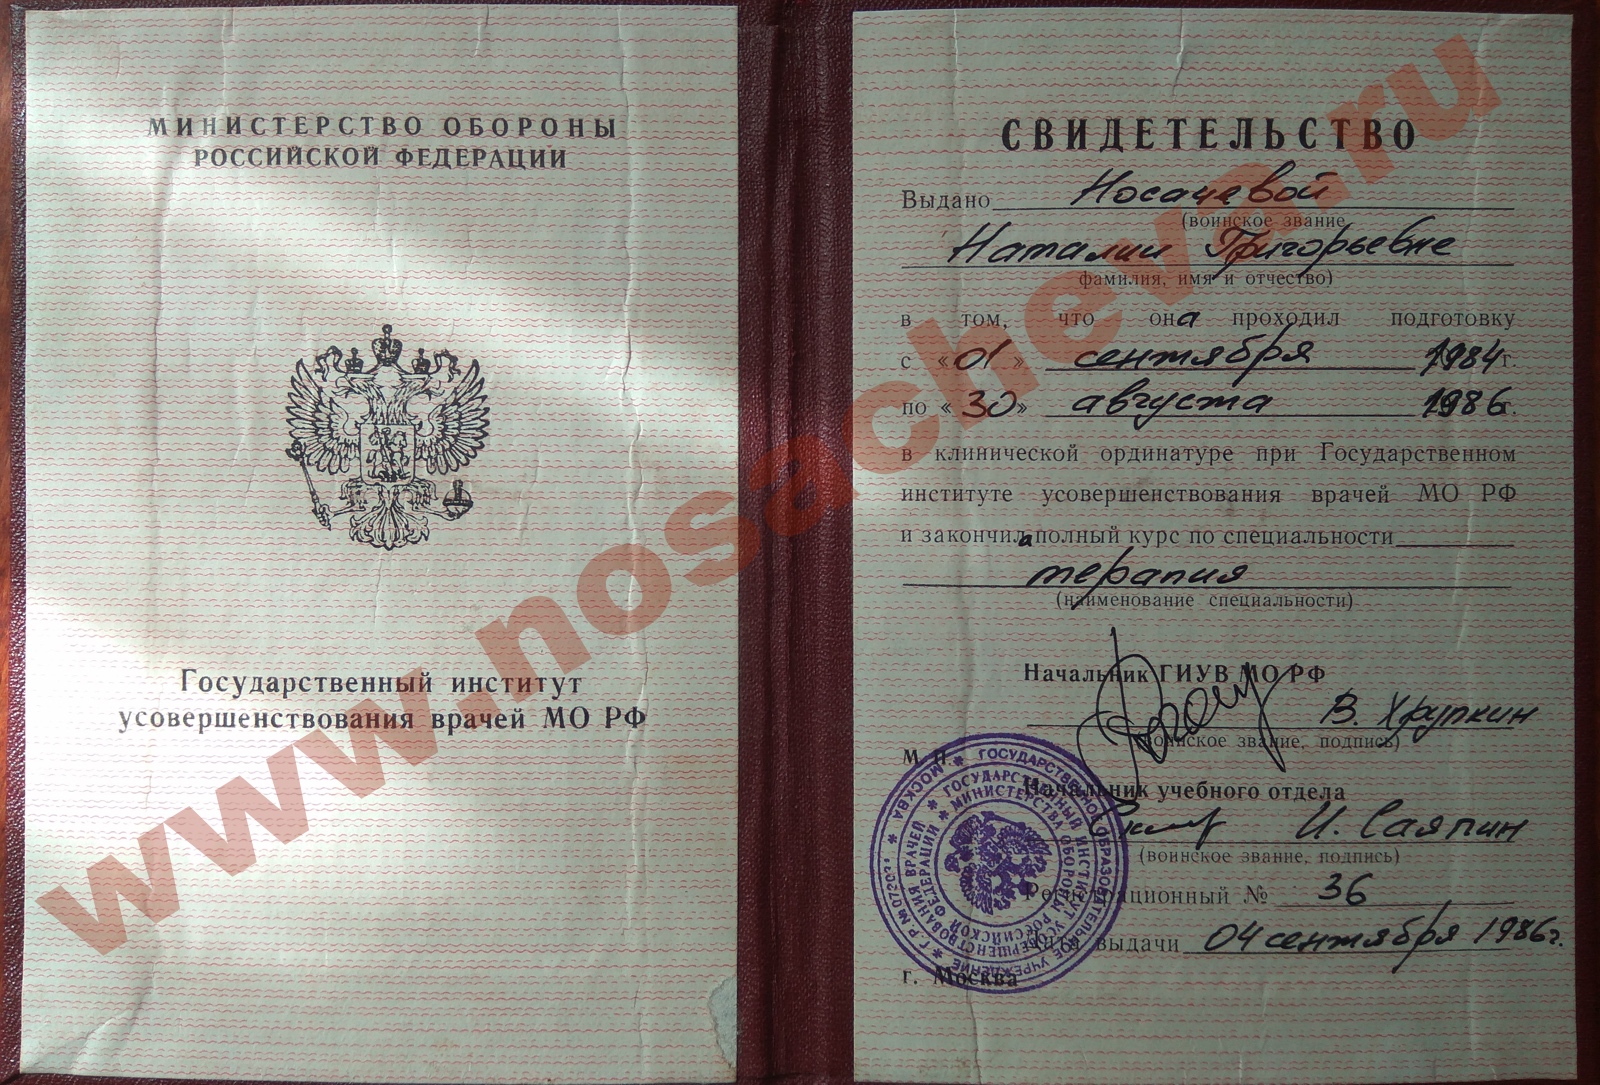 МИНИСТЕРСТВО ОБОРОНЫ
РОССИЙСКОЙ ФЕДЕРАЦИИ
Государственный институт
усовершенствования врачей МО РФ
СВИДЕТЕЛЬСТВО
Выдано Носачевой
(воинское звание
Наталии Григорьевне
фамилия, имя и отчество)
в том, что она проходил подготовку
с «01» сентября 1984 г.
по «30» августа 1986 г.
в клинической ординатуре при Государственном
институте усовершенствования врачей МО РФ
и закончила полный курс по специальности
терапия
(наименование специальности)
Начальник ГИУВ МО РФ
В. Хрупкин
(воинское звание, подпись)
М. П.
Начальник учебного отдела
И. Саяпин
(воинское звание, подпись)
Регистрационный № 36
Дата выдачи 04 сентября 1986 г.
г. Москва
ГОСУДАРСТВЕННОЕ ОБРАЗОВАТЕЛЬНОЕ УЧРЕЖДЕНИЕ
МОСКВА
ГОСУДАРСТВЕННЫЙ ИНСТИТУТ УСОВЕРШЕНСТВОВАНИЯ ВРАЧЕЙ
МИНИСТЕРСТВА ОБОРОНЫ РОССИЙСКОЙ ФЕДЕРАЦИИ
www.nosacheva.ru